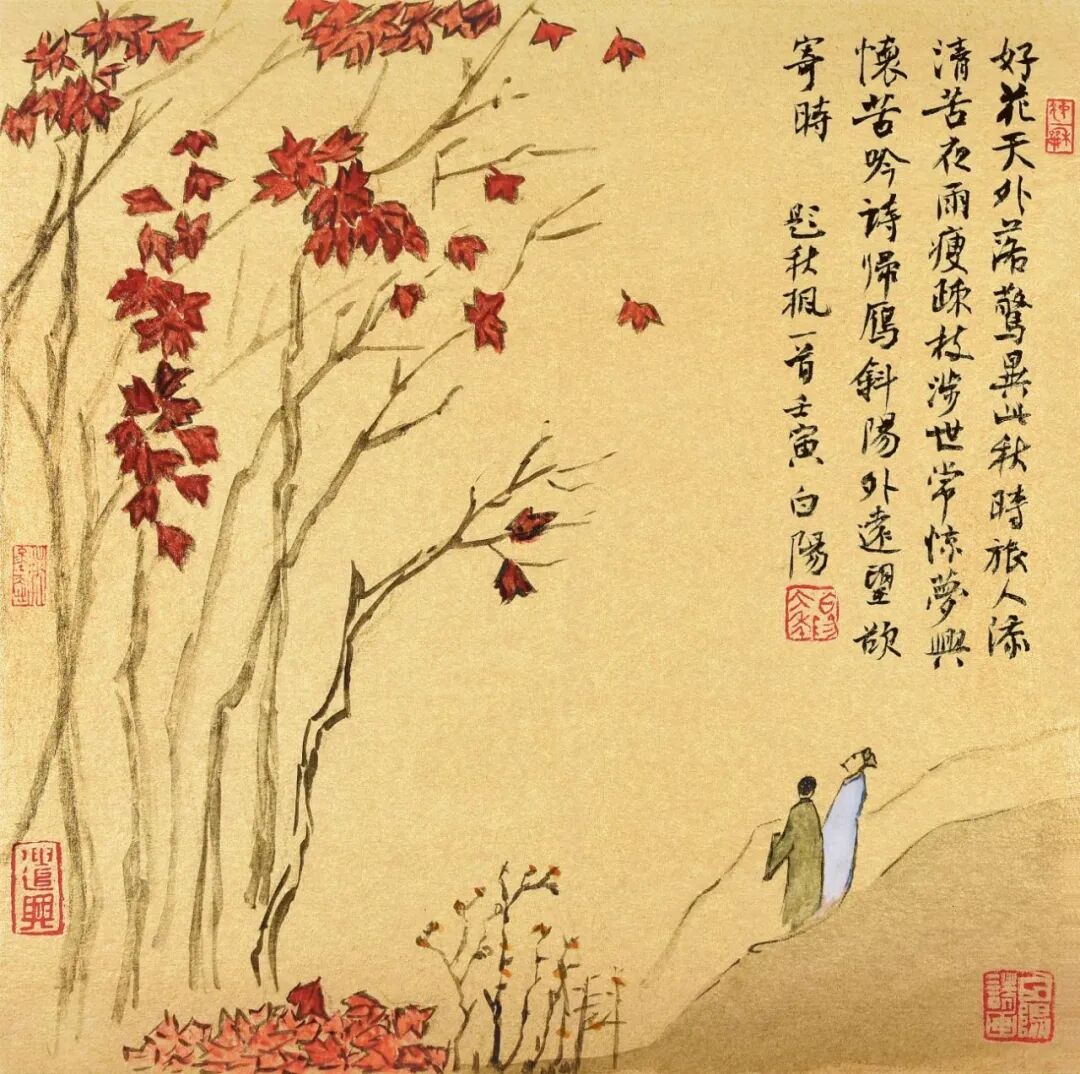 好花天外落驚異此秋時旅人添
清苦夜雨瘦疎枝涉世常惊夢興
懷苦吟詩歸鴈斜陽外遠望欲
寄時 题秋枫一首壬寅白陽